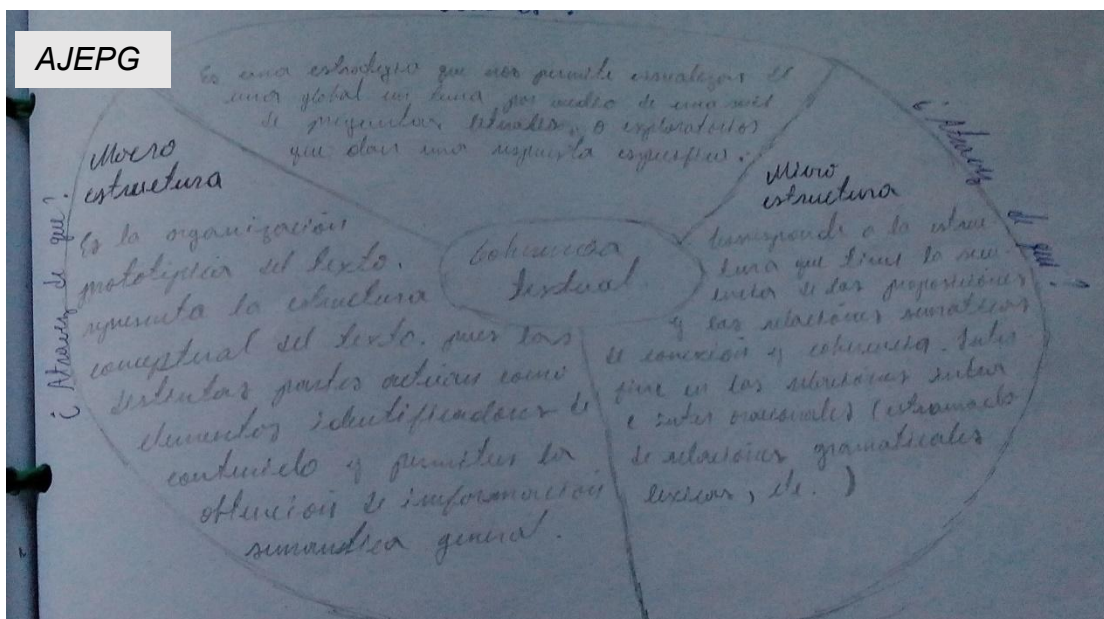 AJEPG
Es una estrategia que nos permite visualizar de
una global un tema por medio de una
de preguntas literales, o exploratorias
que dan una respuesta especifica.
Macro
estructura
¿Atraves de que?
Es la organización
prototipica del texto.
representa la estructura
conceptual del texto. pues las
distintas partes actúan como
elementos identificadores de
contenido y permiten la
obtención de información
semantica general.
Coherencia
textual.
Micro
estructura
¿Atraves de que?
Corresponde a la estruc
tura que tiene la
de las proposiciones
y las relaciones semanticas
de conexión y coherencia.
en las relaciones
e inter oracionales (entramado
de relaciones gramaticales
lexicas, etc.)